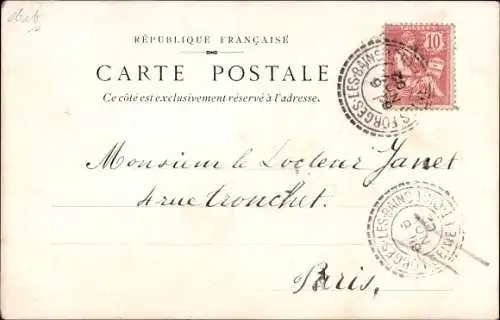 RÉPUBLIQUE FRANÇAISE
CARTE POSTALE
Ce côté est exclusivement réservé à l'adresse.
10
FORGES-LES-BAINS
Monsieur le Docteur Janet
4 rue Tronchet.
FORGES-LES-BAINS
Paris.